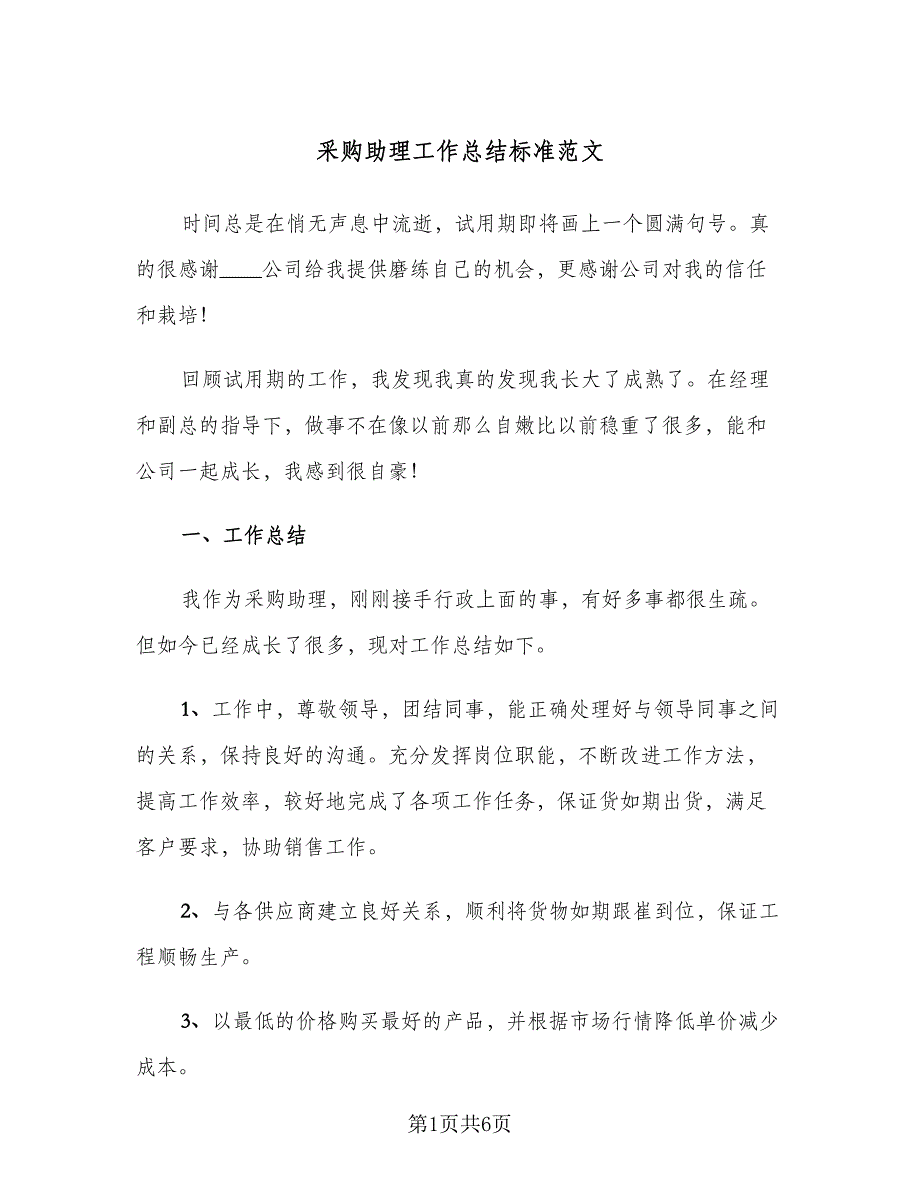 采购助理工作总结标准范文
时间总是在悄无声息中流逝，试用期即将画上一个圆满句号。真
的很感谢____公司给我提供磨练自己的机会，更感谢公司对我的信任
和栽培！
回顾试用期的工作，我发现我真的发现我长大了成熟了。在经理
和副总的指导下，做事不在像以前那么自嫩比以前稳重了很多，能和
公司一起成长，我感到很自豪！
一、工作总结
我作为采购助理，刚刚接手行政上面的事，有好多事都很生疏。
但如今已经成长了很多，现对工作总结如下。
1、工作中，尊敬领导，团结同事，能正确处理好与领导同事之间
的关系，保持良好的沟通。充分发挥岗位职能，不断改进工作方法，
提高工作效率，较好地完成了各项工作任务，保证货如期出货，满足
客户要求，协助销售工作。
2、与各供应商建立良好关系，顺利将货物如期跟崔到位，保证工
程顺畅生产。
3、以最低的价格购买最好的产品，并根据市场行情降低单价减少
成本。
第1页共6页